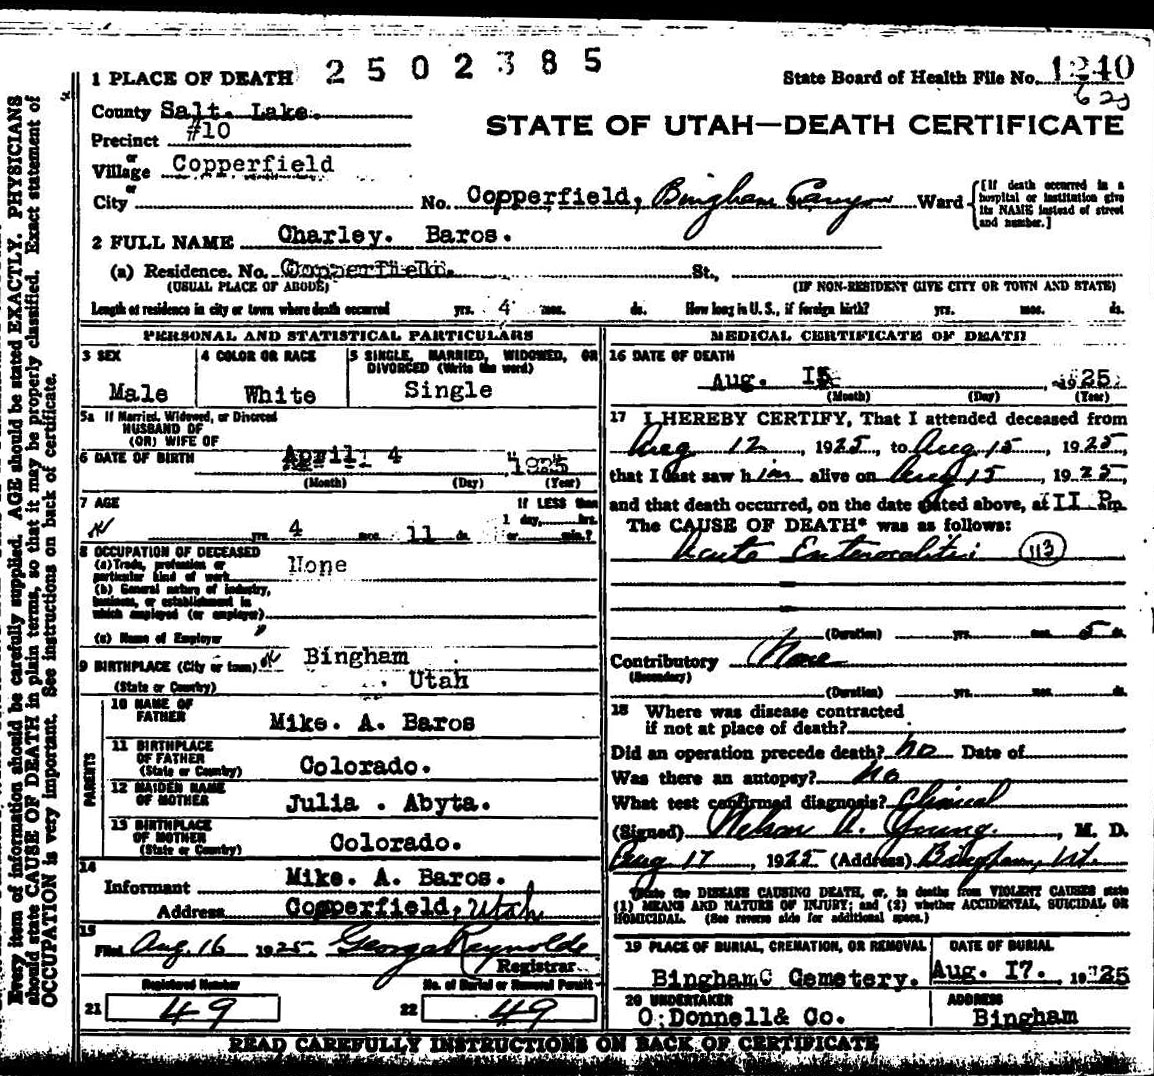 2502385
1 PLACE OF DEATH
State Board of Health File No. 1240
County Salt. Lake.
Precinct #10
STATE OF UTAH—DEATH CERTIFICATE
or
Village Copperfield
or
City No. Copperfield, Bingham Canyon St., Ward
[If death occurred in a
hospital or institution give
its NAME instead of street
and number.]
2 FULL NAME Charley. Baros.
(a) Residence. No. Copperfield. St.,
(USUAL PLACE OF ABODE) (IF NON-RESIDENT GIVE CITY OR TOWN AND STATE)
Length of residence in city or town where death occurred yrs. 4 mos. ds. How long in U. S., if foreign birth? yrs. mos. ds.
PERSONAL AND STATISTICAL PARTICULARS
3 SEX
Male
4 COLOR OR RACE
White
5 SINGLE, MARRIED, WIDOWED, OR
DIVORCED (Write the word)
Single
5a If Married, Widowed, or Divorced
HUSBAND OF
(OR) WIFE OF
6 DATE OF BIRTH April 4 1925
(Month) (Day) (Year)
7 AGE
If LESS than
yrs. 4 mos. 11 ds. 1 day, hrs.
or min.?
8 OCCUPATION OF DECEASED
(a) Trade, profession or
particular kind of work None
(b) General nature of industry,
business, or establishment in
which employed (or employer)
(c) Name of Employer
9 BIRTHPLACE (City or town) Bingham
(State or Country) Utah
PARENTS
10 NAME OF
FATHER Mike. A. Baros
11 BIRTHPLACE
OF FATHER
(State or Country) Colorado.
12 MAIDEN NAME
OF MOTHER Julia . Abyta.
13 BIRTHPLACE
OF MOTHER
(State or Country) Colorado.
14
Informant Mike. A. Baros.
Address Copperfield, Utah
15
Filed Aug. 16 1925. George Reynolds
Registrar
Registered Number No. of Burial or Removal Permit
21 49 22 49
MEDICAL CERTIFICATE OF DEATH
16 DATE OF DEATH
Aug. 15 1925
(Month) (Day) (Year)
17 I HEREBY CERTIFY, That I attended deceased from
Aug 12, 1925, to Aug. 15, 1925,
that I last saw him alive on Aug 15, 1925,
and that death occurred, on the date stated above, at 11 P.m.
The CAUSE OF DEATH* was as follows:
Acute Enterocolitis 113
(Duration) yrs. mos. 5 ds.
Contributory None
(Secondary)
(Duration) yrs. mos. ds.
18 Where was disease contracted
if not at place of death?
Did an operation precede death? no Date of
Was there an autopsy? no
What test confirmed diagnosis? Clinical
(Signed) Nelson A. Young, M. D.
Aug 17, 1925 (Address) Bingham, Ut.
*State the DISEASE CAUSING DEATH, or, in deaths from VIOLENT CAUSES state
(1) MEANS AND NATURE OF INJURY; and (2) whether ACCIDENTAL, SUICIDAL OR
HOMICIDAL. (See reverse side for additional space.)
19 PLACE OF BURIAL, CREMATION, OR REMOVAL
BinghamC Cemetery.
DATE OF BURIAL
Aug. 17. 1925
20 UNDERTAKER
O;Donnell& Co.
ADDRESS
Bingham
READ CAREFULLY INSTRUCTIONS ON BACK OF CERTIFICATE
Every item of information should be carefully supplied. AGE should be stated EXACTLY. PHYSICIANS
should state CAUSE OF DEATH in plain terms, so that it may be properly classified. Exact statement of
OCCUPATION is very important. See instructions on back of certificate.